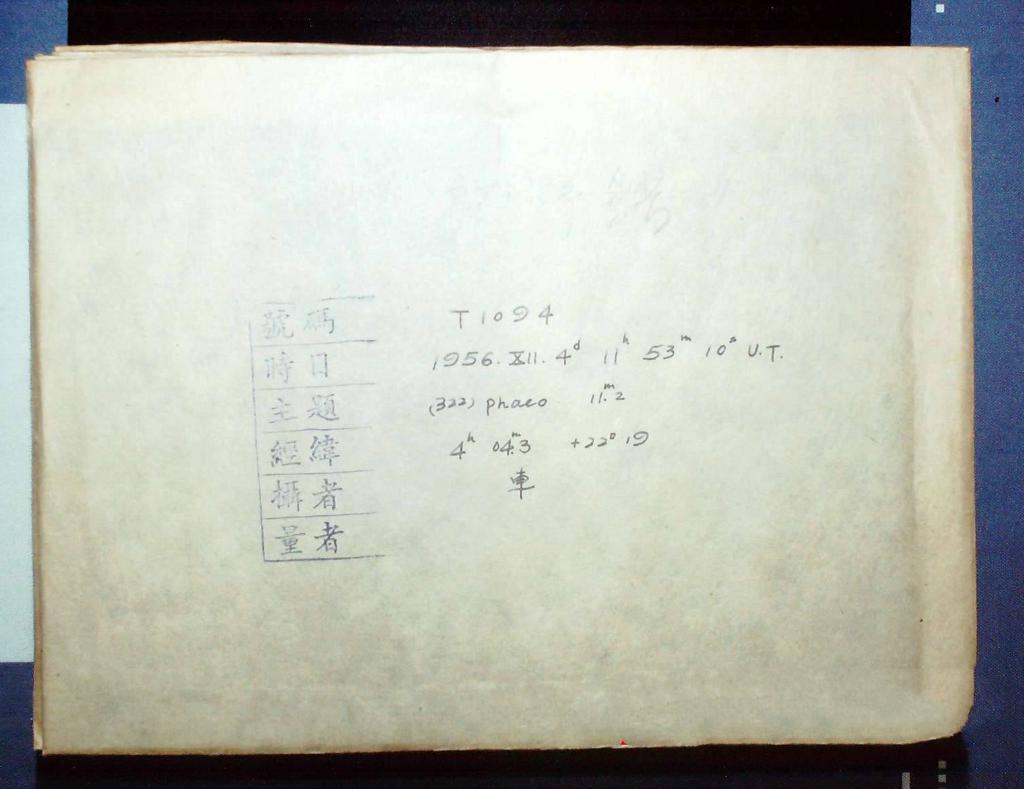 號碼 T1094
時日 1956. XII. 4ᵈ 11ʰ 53ᵐ 10ˢ U.T.
主題 (322) phaeo 11ᵐ.2
經緯 4ʰ 04ᵐ.3 +22° 19
攝者 車
量者